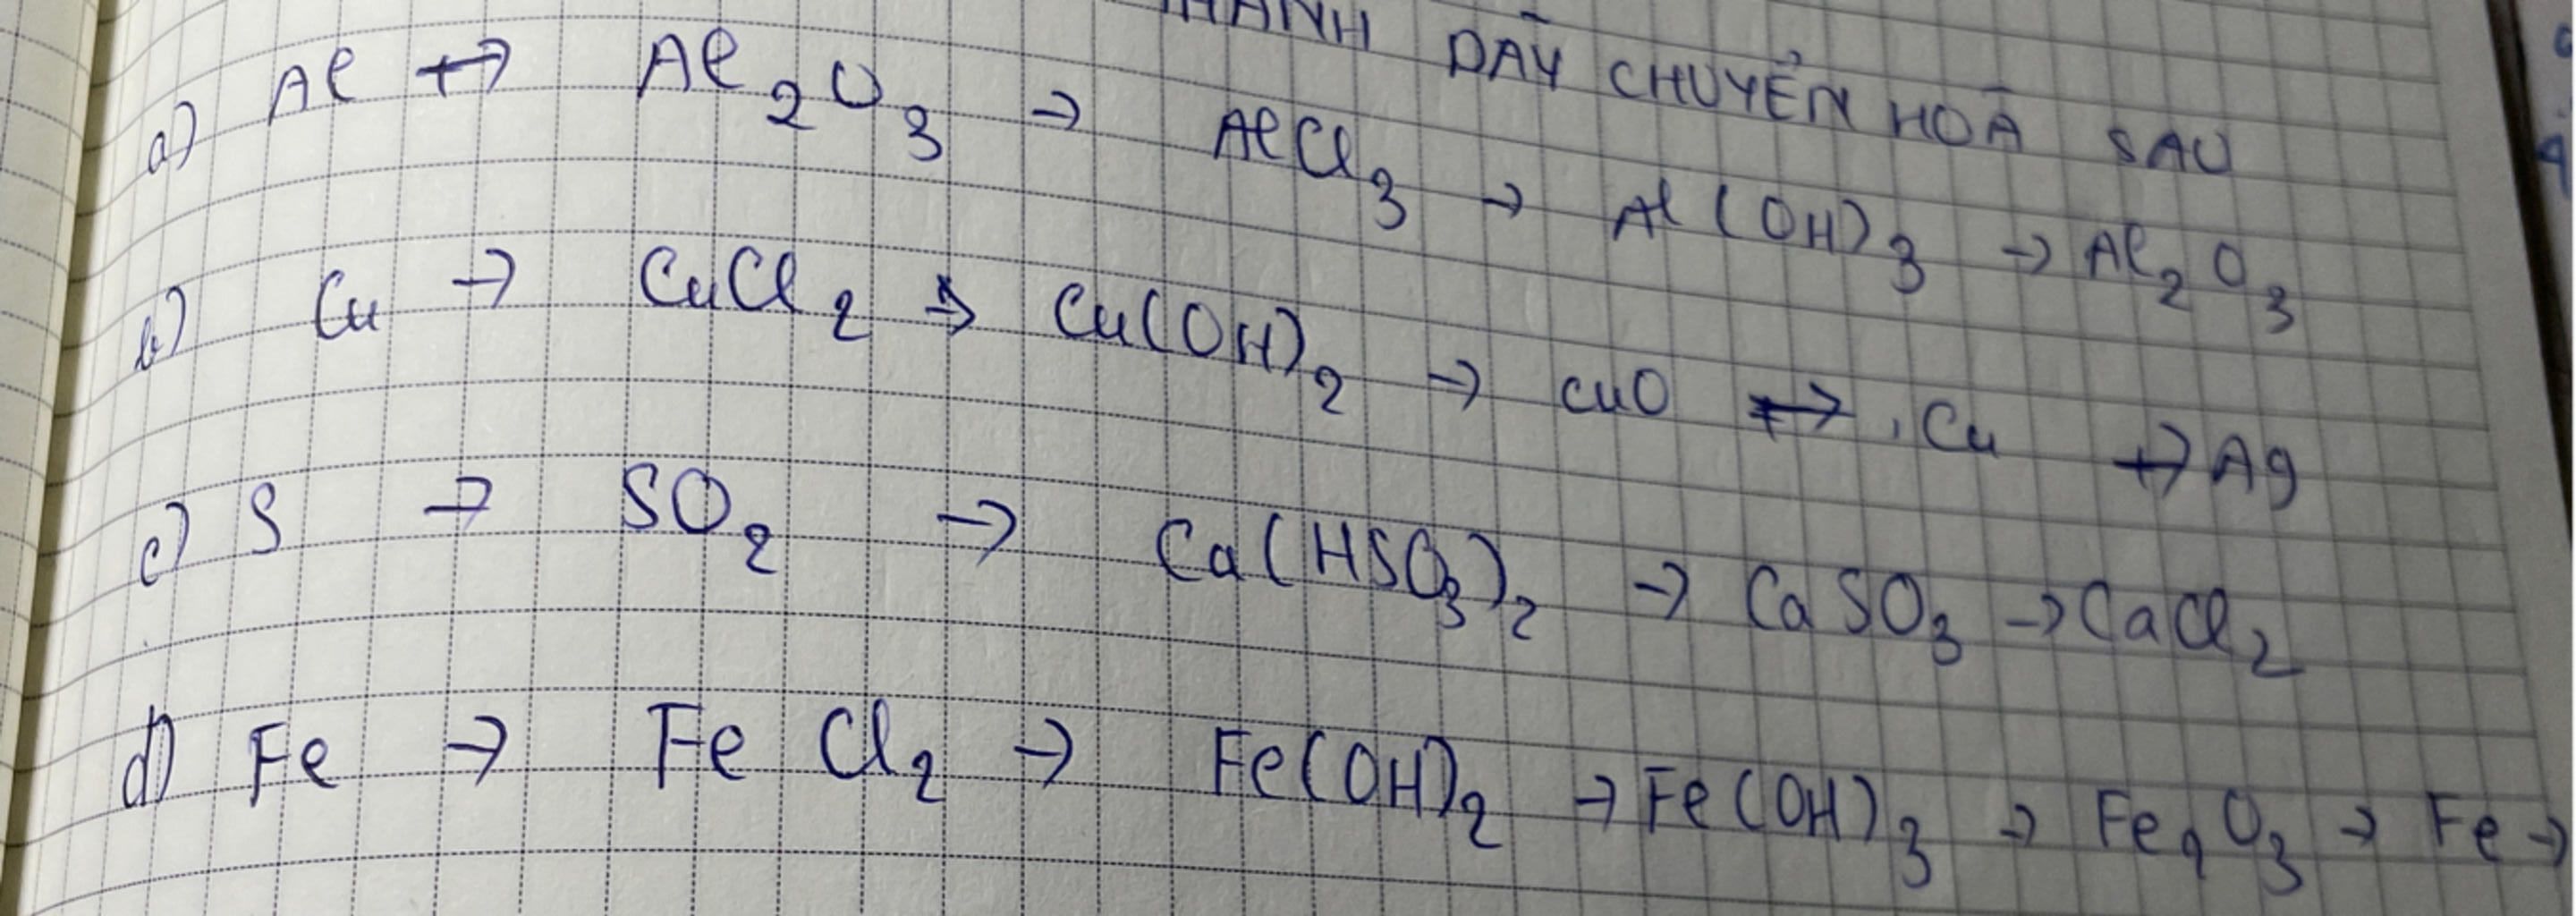 DÃY CHUYỂN HOÁ SAU
a) Al → Al2O3 → AlCl3 → Al(OH)3 → Al2O3
b) Cu → CuCl2 → Cu(OH)2 → CuO → Cu → Ag
c) S → SO2 → Ca(HSO3)2 → CaSO3 → CaCl2
d) Fe → FeCl2 → Fe(OH)2 → Fe(OH)3 → Fe2O3 → Fe →